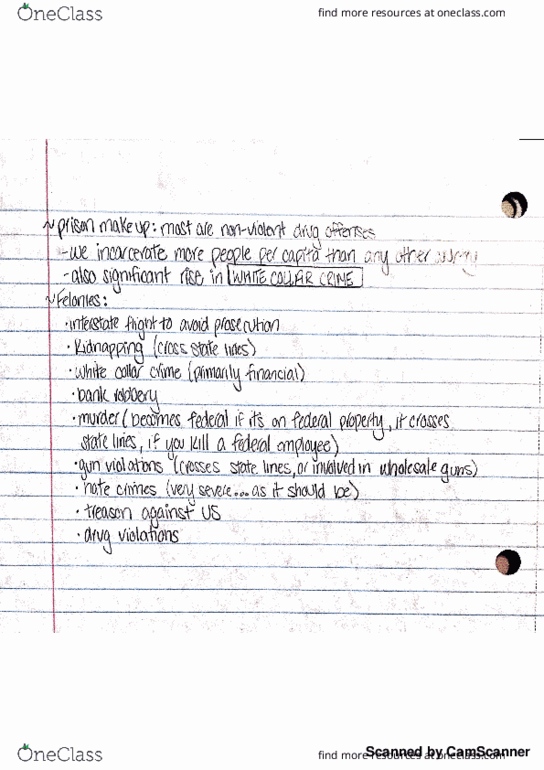 OneClass
find more resources at oneclass.com
~prison makeup: most are non-violent drug offenses
-we incarcerate more people per capita than any other
-also significant rise in WHITE COLLAR CRIME
~Felonies:
·interstate flight to avoid prosecution
·Kidnapping (cross state lines)
·white collar crime (primarily financial)
·bank robbery
·murder (becomes federal if its on federal property, it crosses
state lines, if you kill a federal employee)
·gun violations (crosses state lines, or involved in wholesale guns)
·hate crimes (very severe...as it should be)
·treason against US
·drug violations
OneClass
find more resources at oneclass.com
Scanned by CamScanner